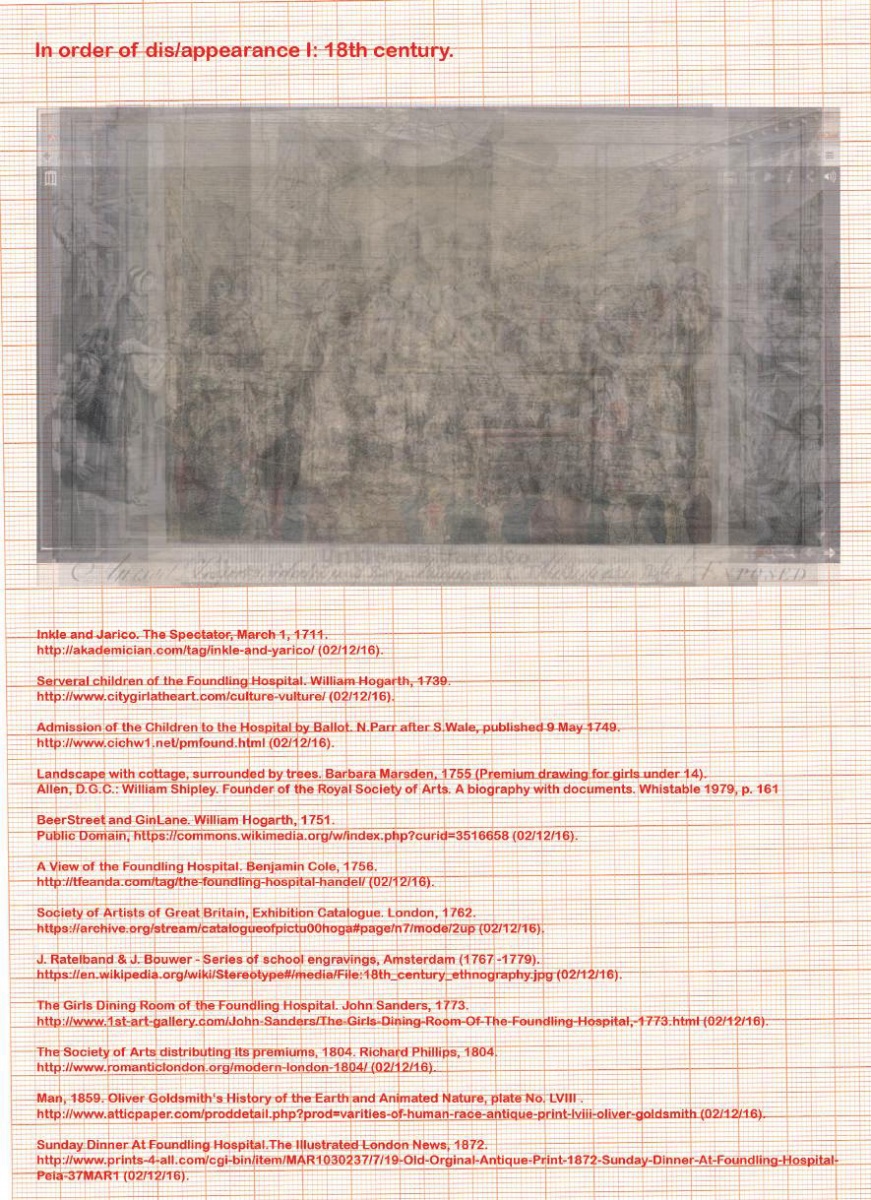 In order of dis/appearance I: 18th century.
EXPOSED
Inkle and Jarico. The Spectator, March 1, 1711.
http://akademician.com/tag/inkle-and-yarico/ (02/12/16).
Serveral children of the Foundling Hospital. William Hogarth, 1739.
http://www.citygirlatheart.com/culture-vulture/ (02/12/16).
Admission of the Children to the Hospital by Ballot. N.Parr after S.Wale, published 9 May 1749.
http://www.cichw1.net/pmfound.html (02/12/16).
Landscape with cottage, surrounded by trees. Barbara Marsden, 1755 (Premium drawing for girls under 14).
Allen, D.G.C.: William Shipley. Founder of the Royal Society of Arts. A biography with documents. Whistable 1979, p. 161
BeerStreet and GinLane. William Hogarth, 1751.
Public Domain, https://commons.wikimedia.org/w/index.php?curid=3516658 (02/12/16).
A View of the Foundling Hospital. Benjamin Cole, 1756.
http://tfeanda.com/tag/the-foundling-hospital-handel/ (02/12/16).
Society of Artists of Great Britain, Exhibition Catalogue. London, 1762.
https://archive.org/stream/catalogueofpictu00hoga#page/n7/mode/2up (02/12/16).
J. Ratelband & J. Bouwer - Series of school engravings, Amsterdam (1767 -1779).
https://en.wikipedia.org/wiki/Stereotype#/media/File:18th_century_ethnography.jpg (02/12/16).
The Girls Dining Room of the Foundling Hospital. John Sanders, 1773.
http://www.1st-art-gallery.com/John-Sanders/The-Girls-Dining-Room-Of-The-Foundling-Hospital,-1773.html (02/12/16).
The Society of Arts distributing its premiums, 1804. Richard Phillips, 1804.
http://www.romanticlondon.org/modern-london-1804/ (02/12/16).
Man, 1859. Oliver Goldsmith's History of the Earth and Animated Nature, plate No. LVIII .
http://www.atticpaper.com/proddetail.php?prod=varities-of-human-race-antique-print-lviii-oliver-goldsmith (02/12/16).
Sunday Dinner At Foundling Hospital.The Illustrated London News, 1872.
http://www.prints-4-all.com/cgi-bin/item/MAR1030237/7/19-Old-Orginal-Antique-Print-1872-Sunday-Dinner-At-Foundling-Hospital-
Peia-37MAR1 (02/12/16).